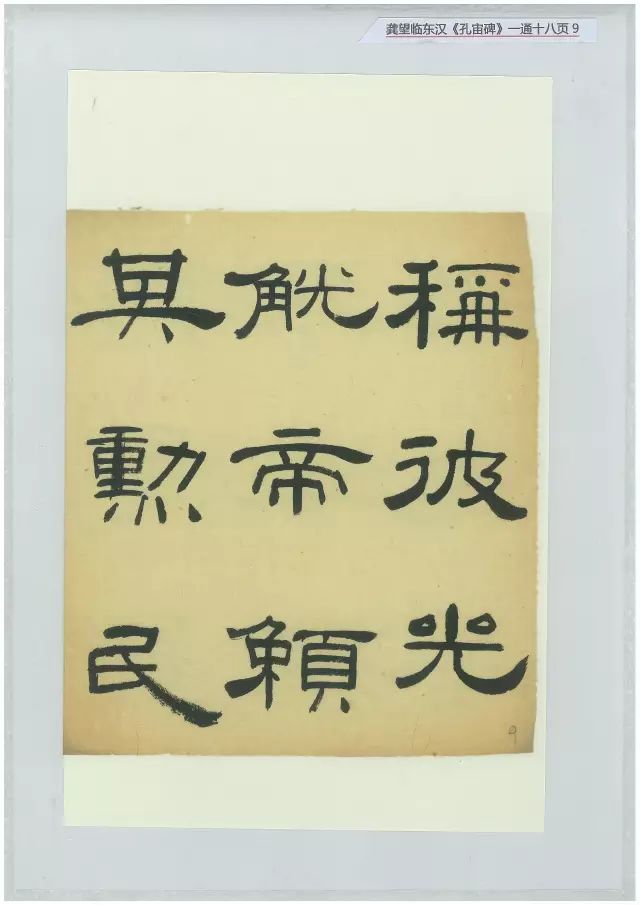 龚望临东汉《孔宙碑》一通十八页 9
稱彼兕
觥帝賴
其勳民
9